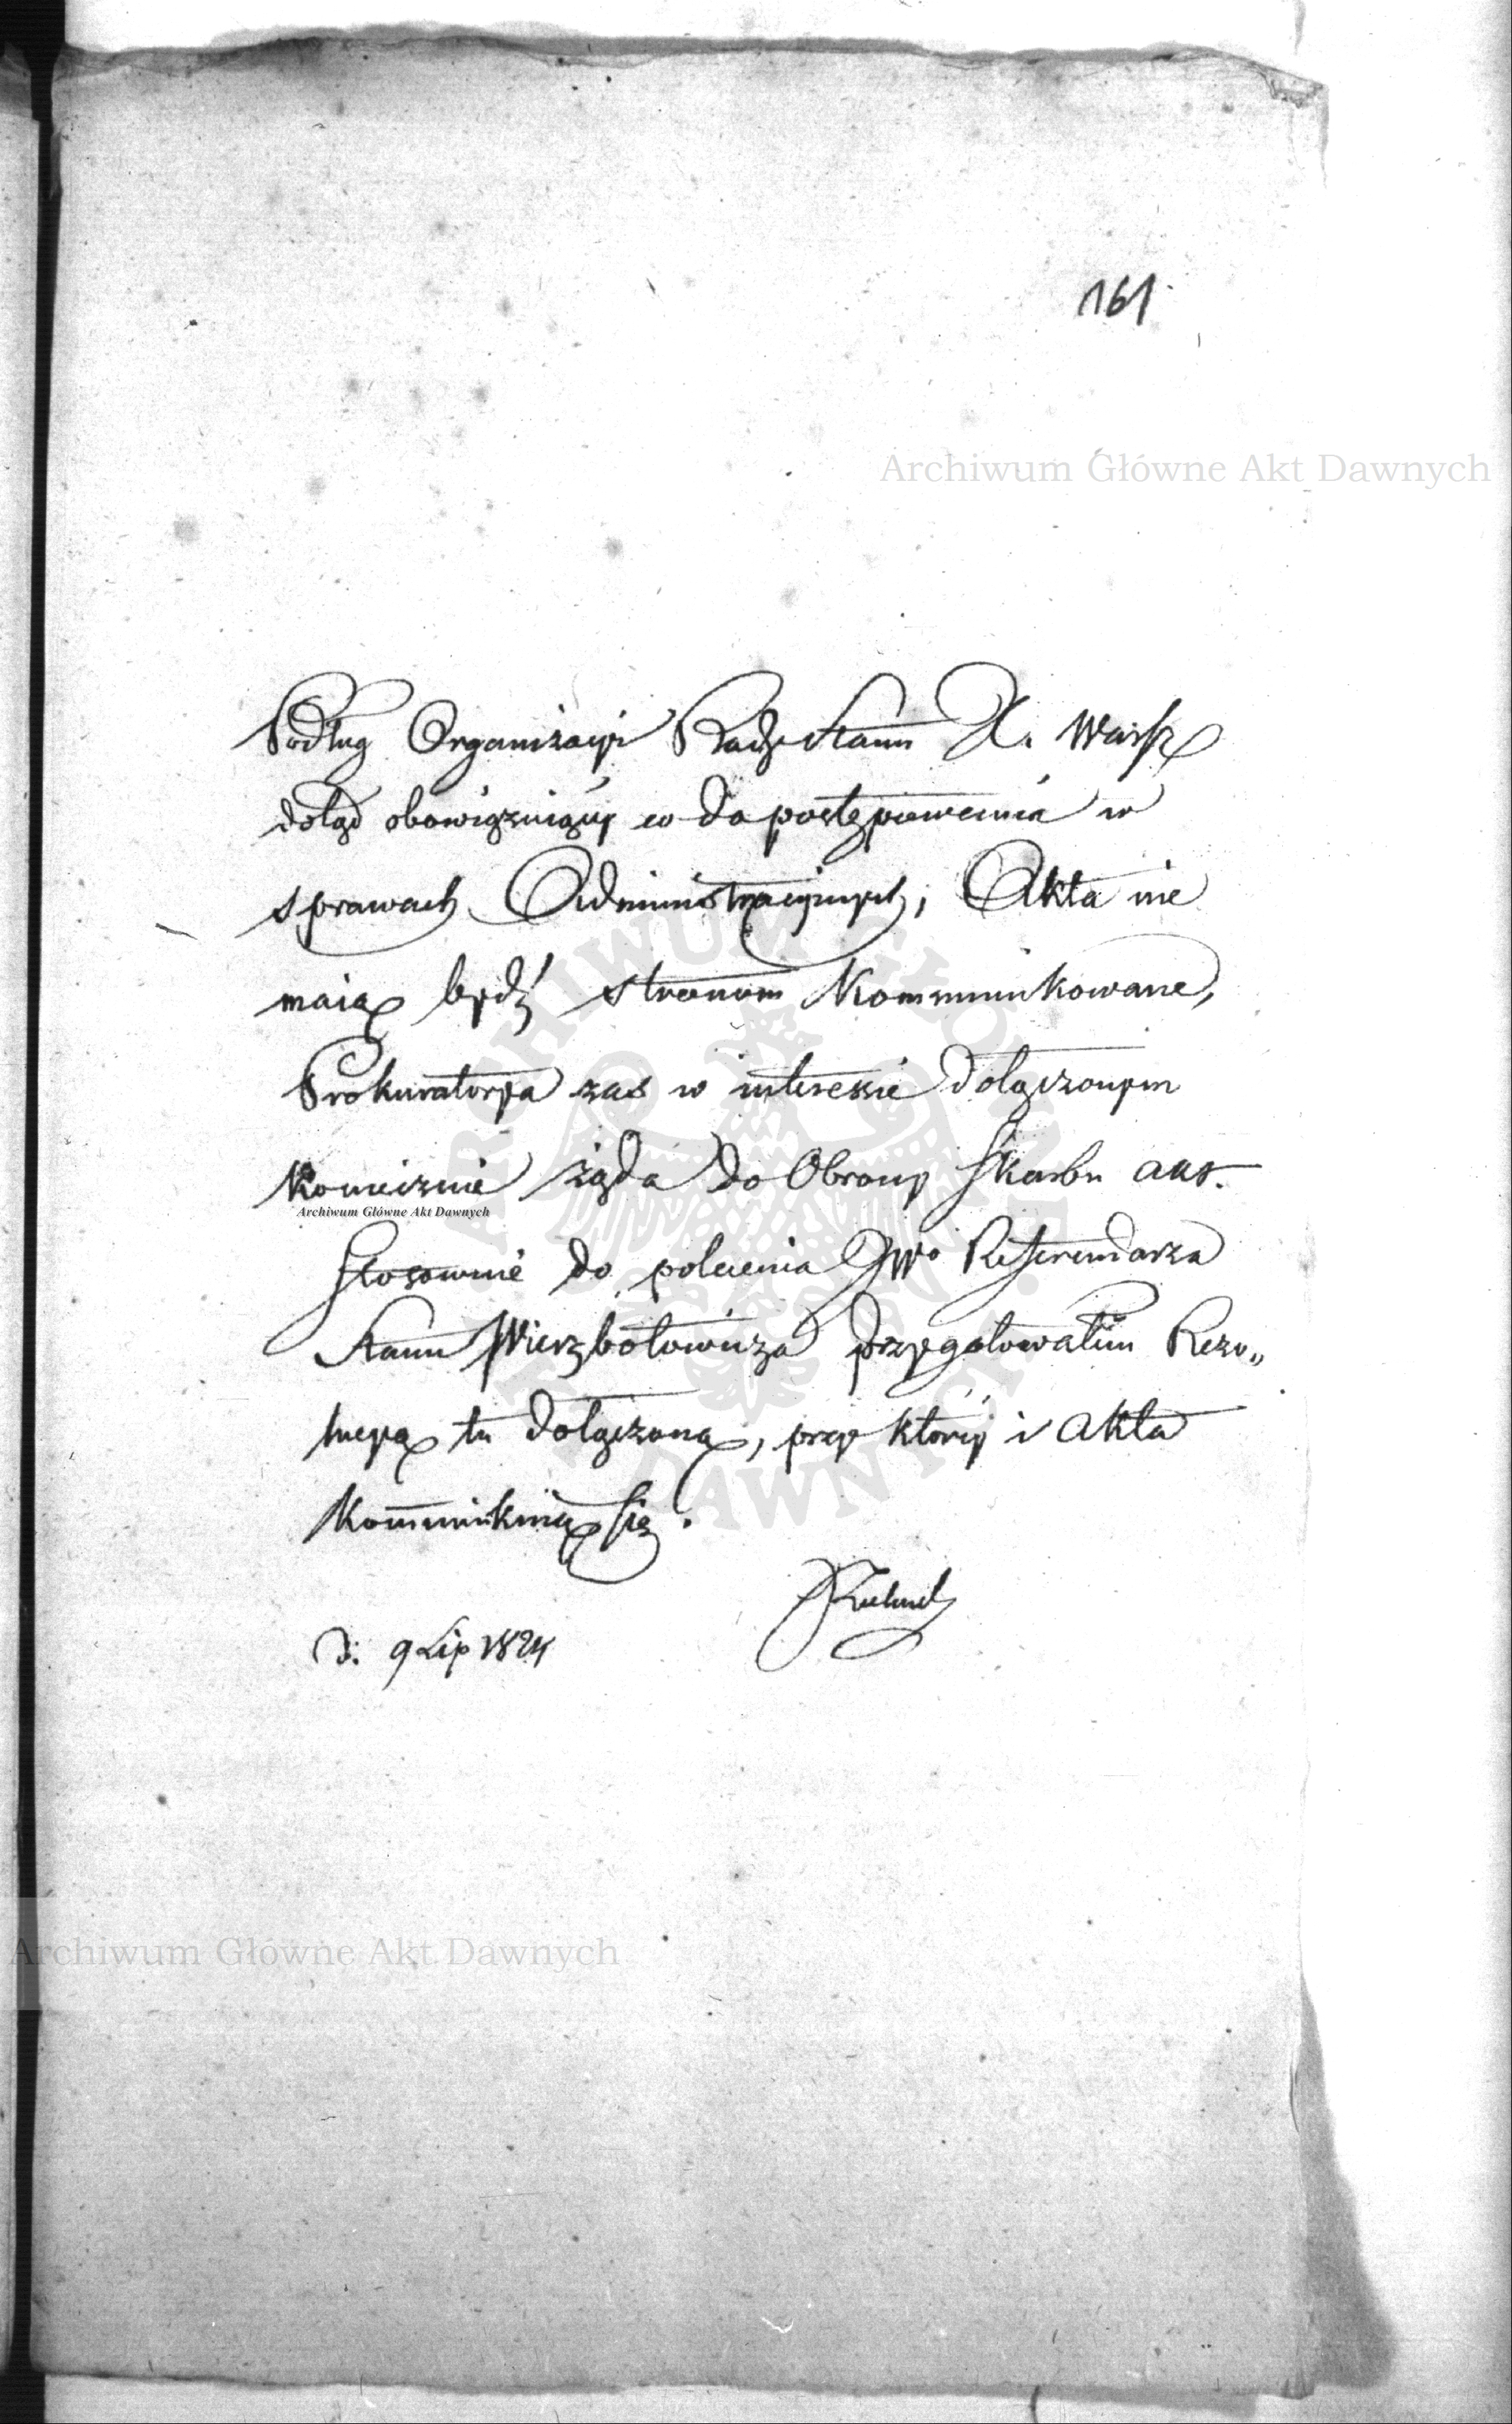 161
Archiwum Główne Akt Dawnych
Podług Organizacyi Rady Stanu X. Warsz
dotąd obowiązuiący co do postępowania w
sprawach Administracyinych, Akta nie
maią bydź stronom Kommunikowane,
Prokuratorya zas w interessie dołączonym
Koniecznie żąda do Obrony Skarbu akt.
Archiwum Główne Akt Dawnych
Stosownie do polecenia JWo Referendarza
Stanu Wierzbołowicza przygotowałem Rezo„
lucyą tu dołączoną, przy ktorey i Akta
Kommunikuią się.
D: 9 Lip 1824
Archiwum Główne Akt Dawnych
ARCHIWUM GŁÓWNE AKT DAWNYCH